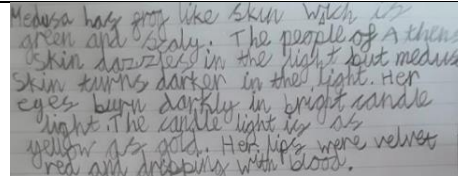 Medusa has frog like skin wich is
green and scaly. The people of Athens
skin dazzles in the light but medus
skin turns darker in the light. Her
eyes burn darkly in bright candle
light. The candle light is as
yellow as gold. Her lips were velvet
red and dropping with blood.